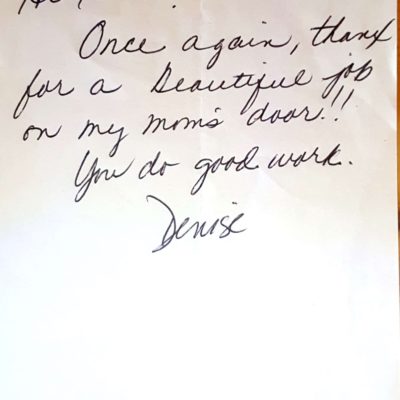 Once again, thanx
for a beautiful job
on my mom's door!!!
You do good work.
Denise